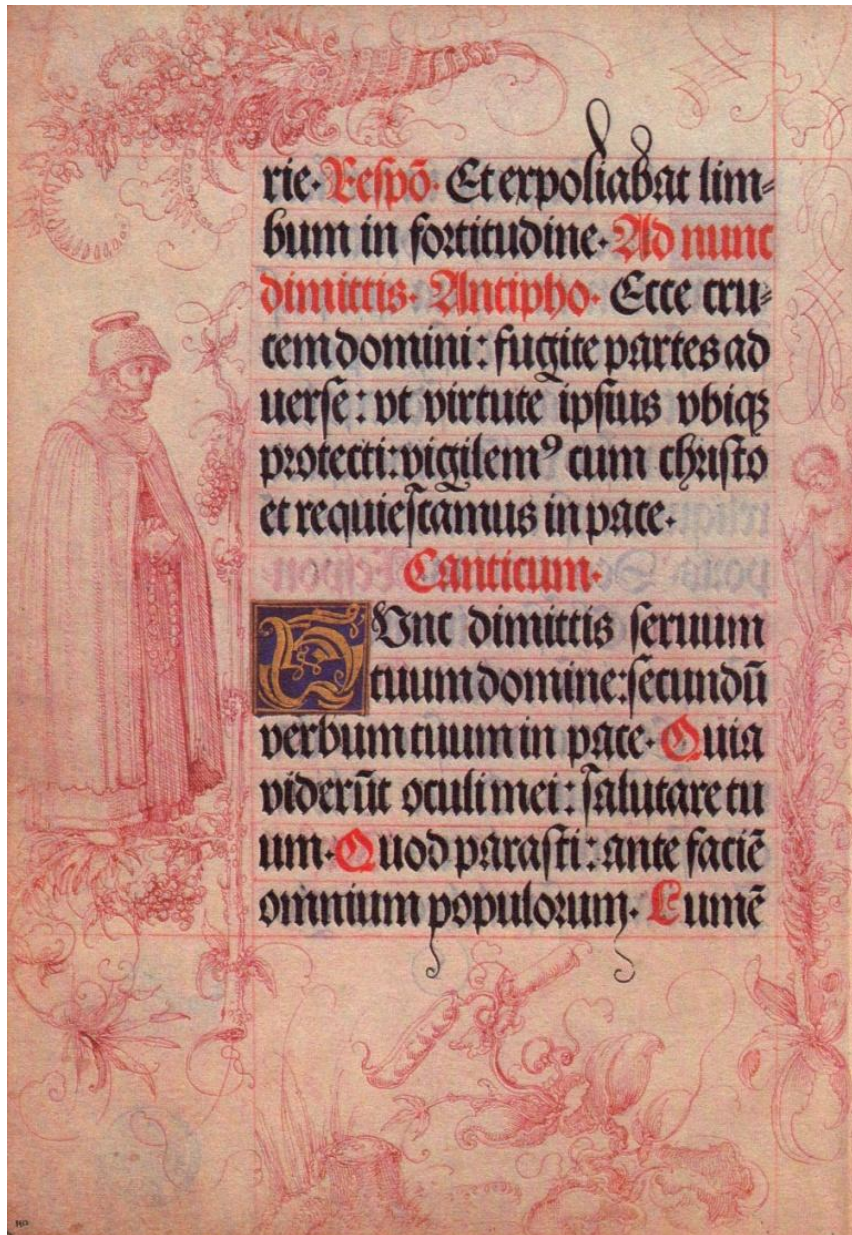 rie. Respō. Et expoliabat lim=
bum in fortitudine. Ad nunc
dimittis. Antipho. Ecce cru=
cem domini: fugite partes ad
uerse: vt virtute ipsius vbiqꝫ
protecti: vigilemꝰ cum christo
et requiescamus in pace.
Canticum.
NVnc dimittis seruum
tuum domine: secundū
verbum tuum in pace. Quia
viderūt oculi mei: salutare tu
um. Quod parasti: ante faciē
omnium populorum. Lumē